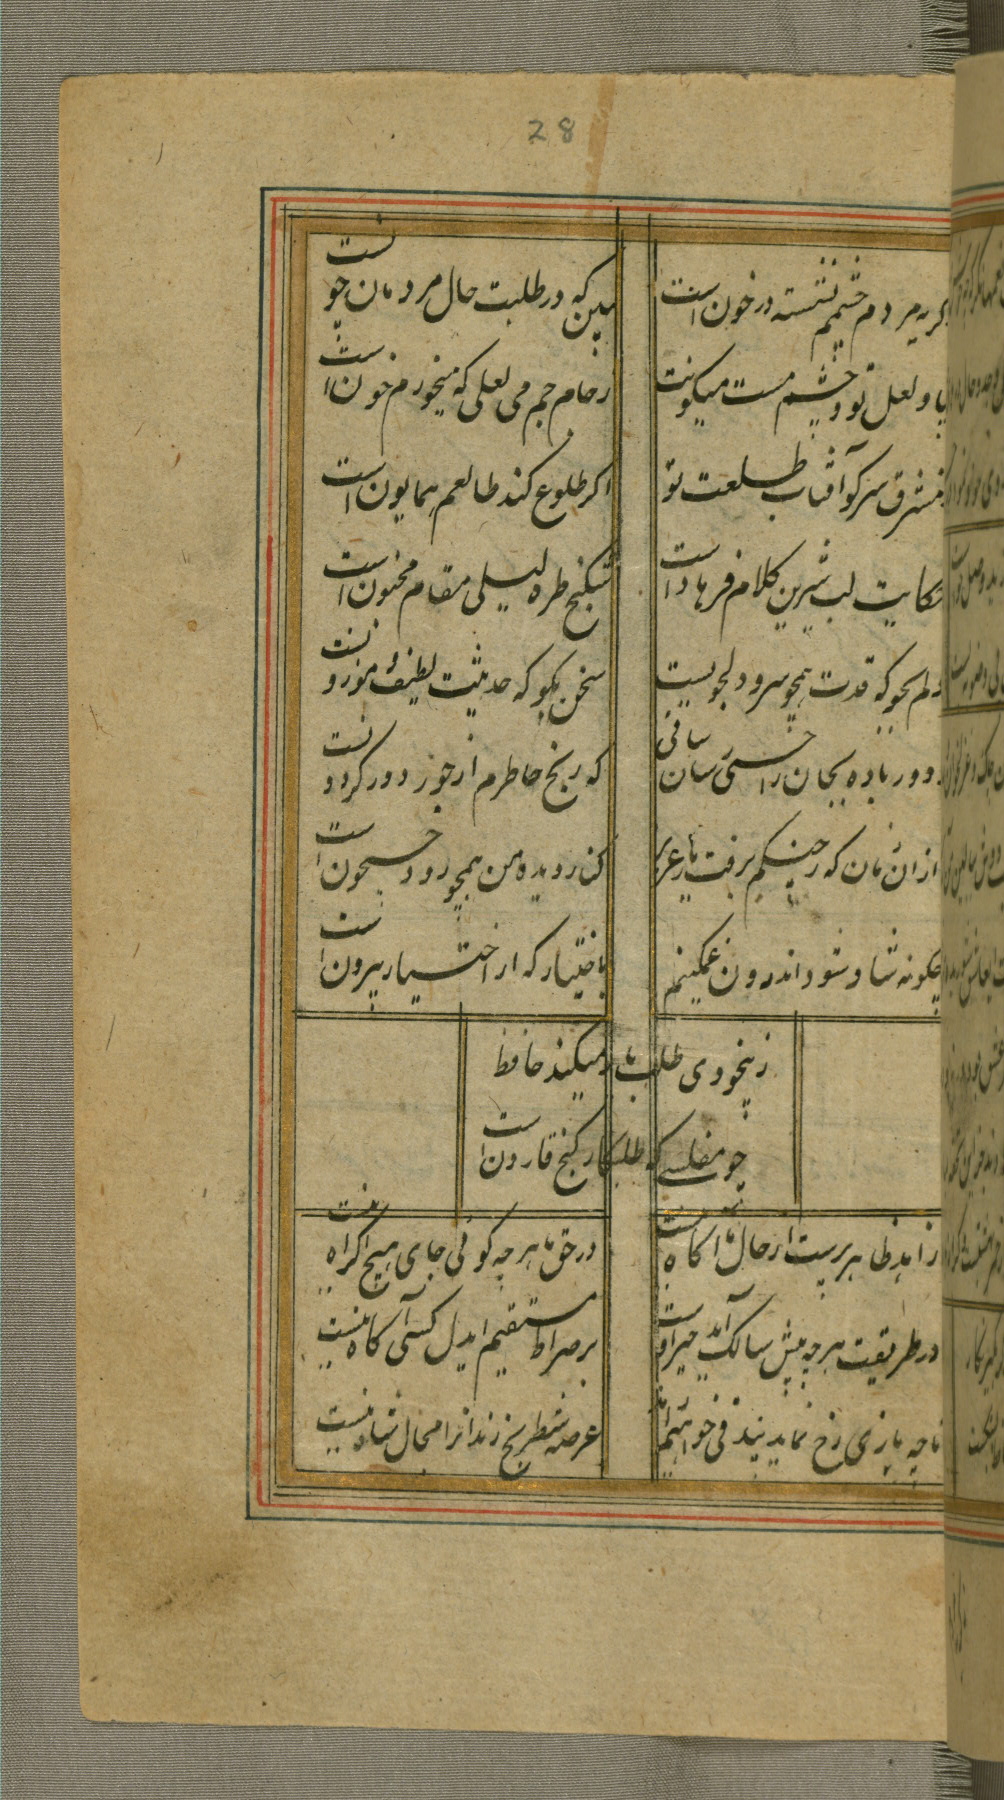 28
ز گریه مردم چشمم نشسته در خون است
ببین که در طلبت حال مردمان چونست
بیاد لعل تو و چشم مست میکونت
ز جام جم می لعلی که میخورم خونست
ز مشرق سر کو آفتاب طلعت تو
اکر طلوع کند طالعم همایون است
حکایت لب شیرین کلام فرهاد است
شکنج طره لیلی مقام مجنون است
دلم بجو که قدت همچو سرو دلجویست
سخن بکو که حدیثت لطیف موزونست
ز دور باده بجان راحتی رسان ساقی
که رنج خاطرم از جور دور کردونست
از آن زمان که ز چنکم برفت یار عزیز
کنار دیده من همچو رود جیحون است
چکونه شاد شود اندرون غمکینم
باختیار که از اختیار بیرون است
ز بیخودی طلب یار میکند حافظ
چو مفلسی که طلبکار کنج قارون است
زاهد ظاهر پرست از حال ما آکاه نیست
در حق ما هر چه کوئی جای هیچ اکراه نیست
در طریقت هر چه پیش سالک آید خیر اوست
بر صراط مستقیم ایدل کسی آکاه نیست
تا چه بازی رخ نماید بیذقی خواهیم راند
عرصه شطرنج رندانرا مجال شاه نیست